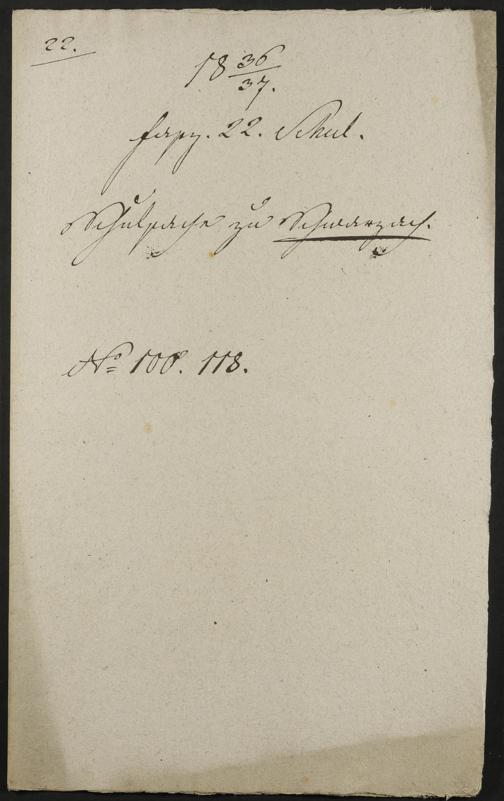 22.
18 36/37.
fasz. 22. Schul.
Schulsache zu Schwarzach.
No 108. 118.